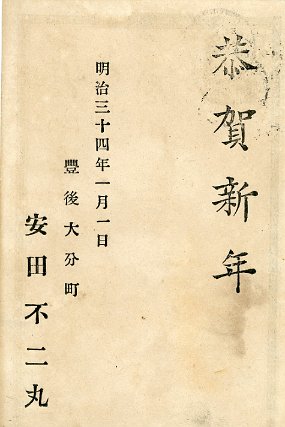 恭賀新年
明治三十四年一月一日
豐後大分町
安田不二丸